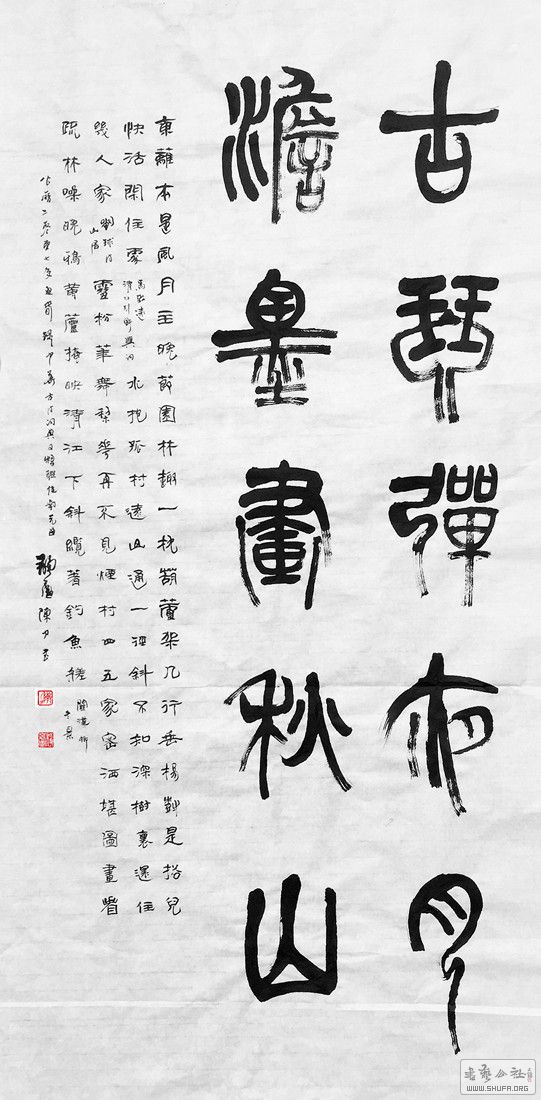 古琴彈夜月
澹墨畫秋山
東籬本是風月主晚節園林趣一枕葫蘆架几行垂楊樹是搭兒
快活閑住處 馬致遠清江引野興句 水抱孤村遠山通一徑斜不知深樹裏還住
幾人家 劉球詩山居 雪粉華舞梨花再不見煙村四五家密洒堪圖畫看
疏林噪晚鴉黃蘆掩映清江下斜纜著釣魚艖 關漢卿冬景
陳
書藝公社
WWW.SHUFA.ORG